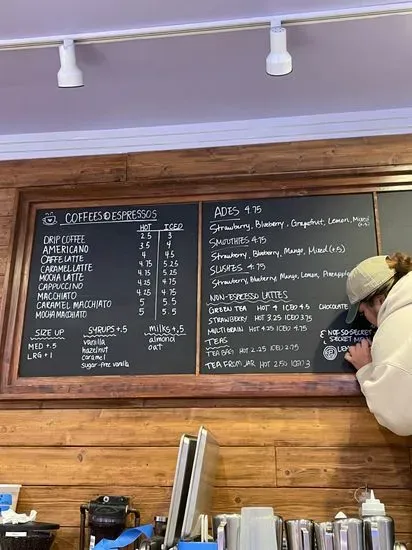 COFFEES & ESPRESSOS
HOT ICED
DRIP COFFEE 2.5 3
AMERICANO 3.5 4
CAFFE LATTE 4 4.5
CARAMEL LATTE 4.75 5.25
MOCHA LATTE 4.75 5.25
CAPPUCCINO 4.25 4.75
MACCHIATO 4.25 4.75
CARAMEL MACCHIATO 5 5.5
MOCHA MACCHIATO 5 5.5
SIZE UP
MED +.5
LRG +1
SYRUPS +.5
vanilla
hazelnut
caramel
sugar-free vanilla
MILKS +.5
almond
oat
ADES 4.75
Strawberry, Blueberry, Grapefruit, Lemon, Mixed (+.5)
SMOOTHIES 4.75
Strawberry, Blueberry, Mango, Mixed (+.5)
SLUSHES 4.75
Strawberry, Blueberry, Mango, Lemon, Pineapple
NON-ESPRESSO LATTES
GREEN TEA HOT 4 ICED 4.5 CHOCOLATE
STRAWBERRY HOT 3.25 ICED 3.75
MULTI GRAIN HOT 4.25 ICED 4.75
TEAS
TEA BAG HOT 2.25 ICED 2.75
TEA FROM JAR HOT 2.50 ICED 3
NOT-SO-SECRET